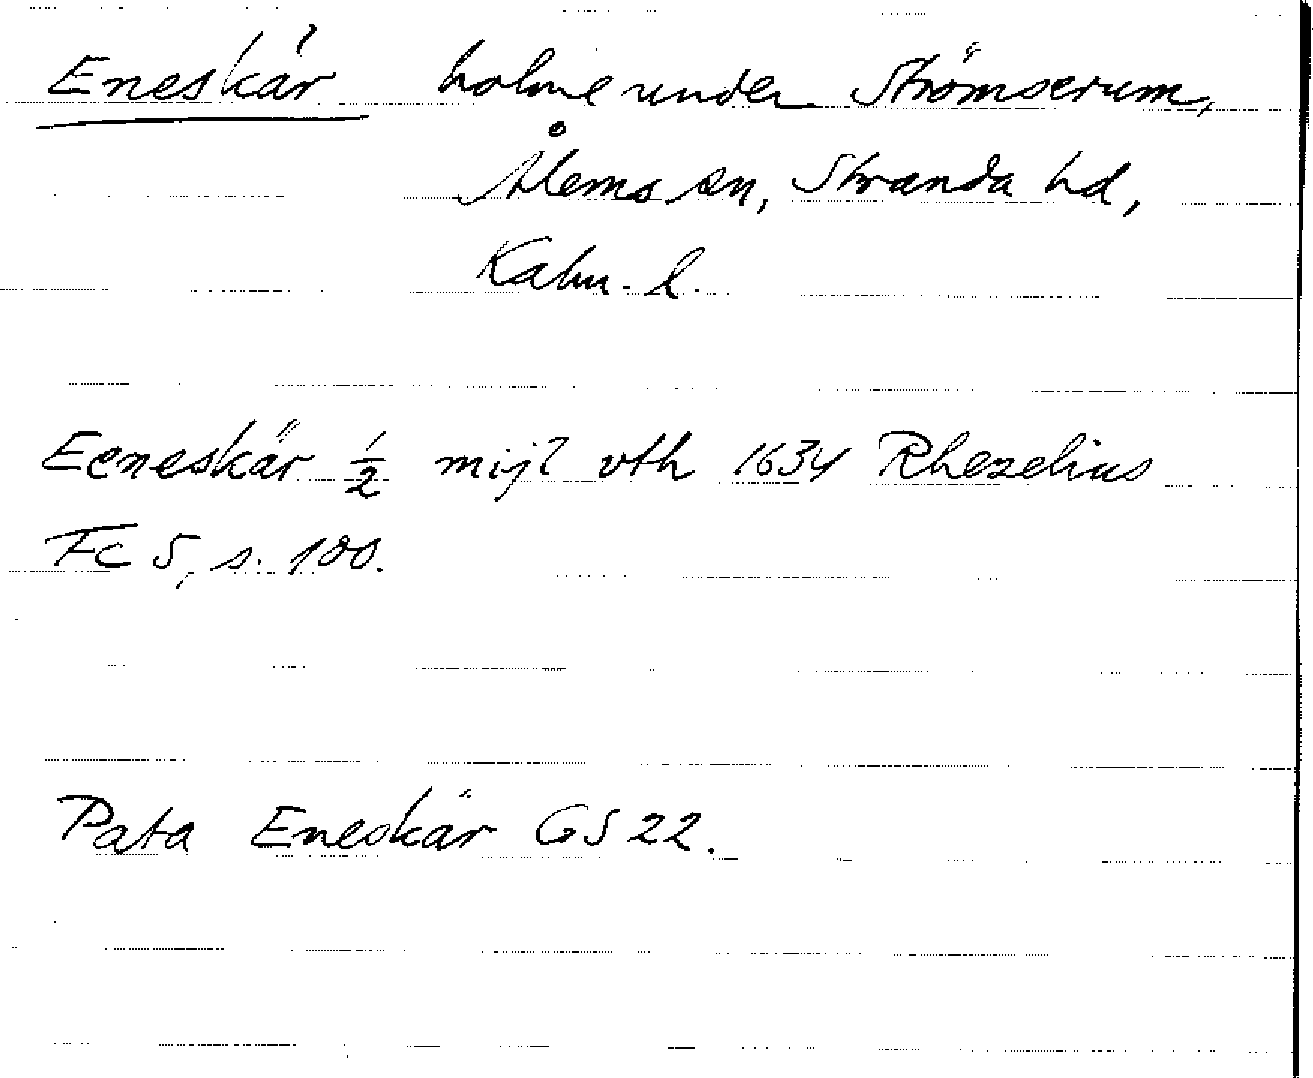 Eneskär holme under Strömserum,
Ålems sn, Stranda hd,
Kalm. l.
Eeneskär ½ mijl vth 1634 Rhezelius
Fc 5, s. 100.
Pata Eneskär GS 22.